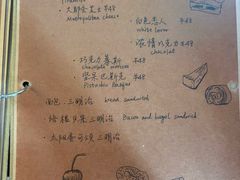 大都会芝士 ¥48
Metropolitan cheese
白色恋人 ¥48
white lover
浓情巧克力 ¥48
chocolat
巧克力慕斯 ¥48
Chocolate mousse
紫果巴斯克 ¥48
Pistachio Basque
面包、三明治 bread sandwich
培根贝果三明治 Bacon and bagel sandwich
太阳蛋可颂三明治